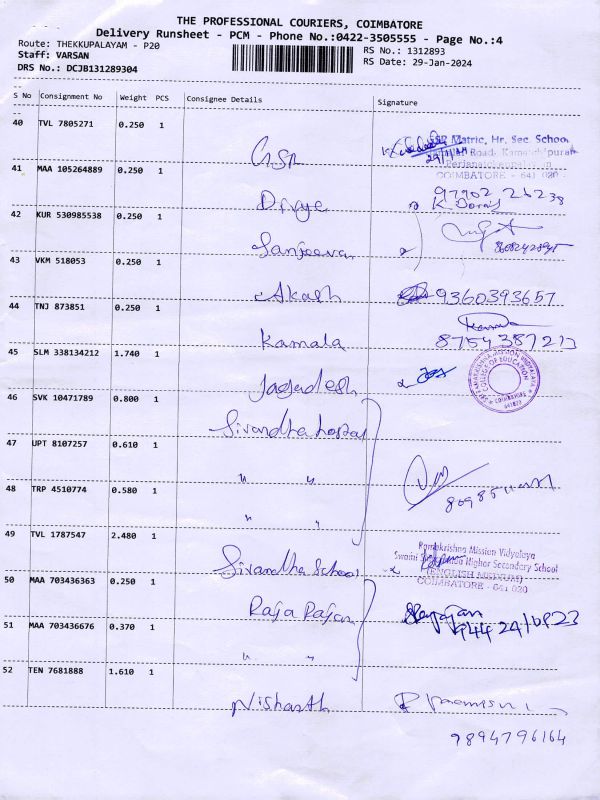 THE PROFESSIONAL COURIERS, COIMBATORE
Delivery Runsheet - PCM - Phone No.:0422-3505555 - Page No.:4
Route: THEKKUPALAYAM - P20
RS No.: 1312893
Staff: VARSAN
RS Date: 29-Jan-2024
DRS No.: DCJB131289304
S No Consignment No Weight PCS Consignee Details Signature
40 TVL 7805271 0.250 1
GSR
Matric, Hr. Sec. School
Road,
COIMBATORE - 641 020
41 MAA 105264889 0.250 1
Divye
97902 26238
42 KUR 530985538 0.250 1
Sanjeevan
43 VKM 518053 0.250 1
Akash 9360393657
44 TNJ 873851 0.250 1
Kamala 8754387213
45 SLM 338134212 1.740 1
Jagadesh
RAMAKRISHNA MISSION VIDYALAYA
COLLEGE OF EDUCATION
COIMBATORE
641020
46 SVK 10471789 0.800 1
47 UPT 8107257 0.610 1
" "
48 TRP 4510774 0.580 1
" "
49 TVL 1787547 2.480 1
Sivandha School
Ramakrishna Mission Vidyalaya
Swami Higher Secondary School
(ENGLISH MEDIUM)
COIMBATORE - 641 020
50 MAA 703436363 0.250 1
Raja Rajan
51 MAA 703436676 0.370 1
" "
52 TEN 7681888 1.610 1
Nishanth
9894796164